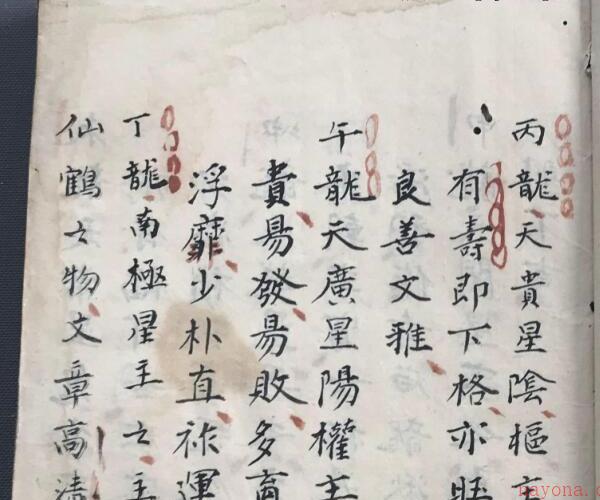 丙龍天貴星陰樞
有壽即下格亦旺
良善文雅
午龍天廣星陽權主
貴易發易敗多富
浮靡少朴直祿運
丁龍南極星主之主
仙鶴之物文章高清
nayona.cn